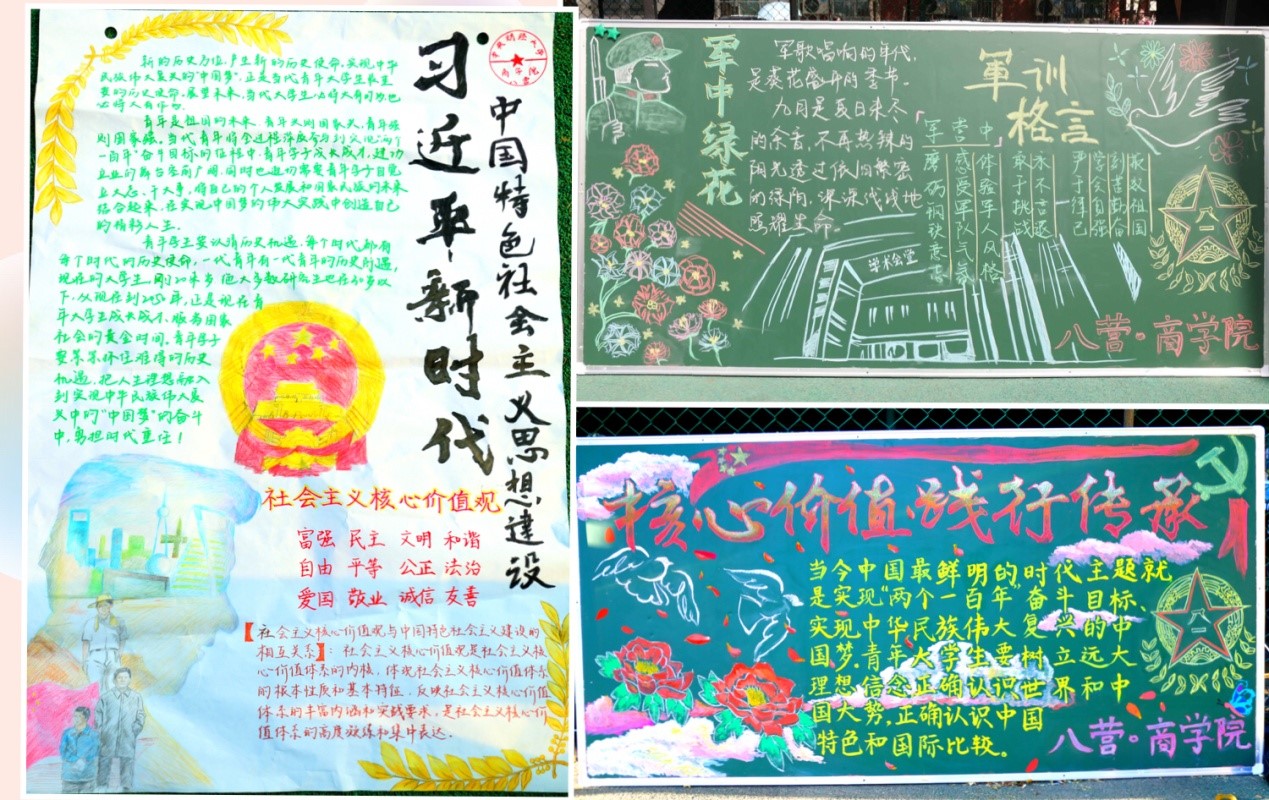 习近平新时代
中国特色社会主义思想建设
新的历史方位,产生新的历史使命,实现中华
民族伟大复兴的"中国梦",正是当代青年大学生最重
要的历史使命。展望未来,当代大学生必将大有可为,也
必将大有作为。
青年是祖国的未来,青年兴则国家兴,青年强
则国家强。
一百年"奋斗目标的征程中,青年学子成长成才、建功
立业的舞台更加广阔,同时也迫切需要青年学子自觉
立大志、干大事,将自己的个人发展和国家民族的未来
结合起来,在实现中国梦的伟大实践中创造自己
的精彩人生。
青年学生要认清历史机遇,每个时代都有
每个时代的历史使命,一代青年有一代青年的历史际遇,
下,从现在到2050年,正是现在青
年大学生成长成才、服务国家
社会的黄金时间,青年学子
要紧紧抓住难得的历史
机遇,把人生理想融入
到实现中华民族伟大复
兴中的"中国梦"的奋斗
中,勇担时代重任!
社会主义核心价值观
富强 民主 文明 和谐
自由 平等 公正 法治
爱国 敬业 诚信 友善
【社会主义核心价值观与中国特色社会主义建设的
相互关系】:社会主义核心价值观是社会主义核
心价值体系的内核,体现社会主义核心价值体系
的根本性质和基本特征,反映社会主义核心价值
体系的丰富内涵和实践要求,是社会主义核心价
值体系的高度凝练和集中表达。
军中绿花
军歌嘹响的年代,
是葵花盛开的季节。
九月是夏日未尽
的余香,不再热辣的
阳光透过依旧繁密
的绿荫,深深浅浅地
照耀生命。
軍训
格言
军营中
磨砺钢铁意志
感受军队气氛
体验军人风格
敢于挑战
永不言退
严于律己
学会自强
刻苦勤奋
报效祖国
学术会堂
八一
八营·商学院
核心价值践行传承
当今中国最鲜明的时代主题就
是实现"两个一百年"奋斗目标、
实现中华民族伟大复兴的中
国梦。青年大学生要树立远大
理想信念正确认识世界和中
国大势,正确认识中国
特色和国际比较。
八一
八营·商学院